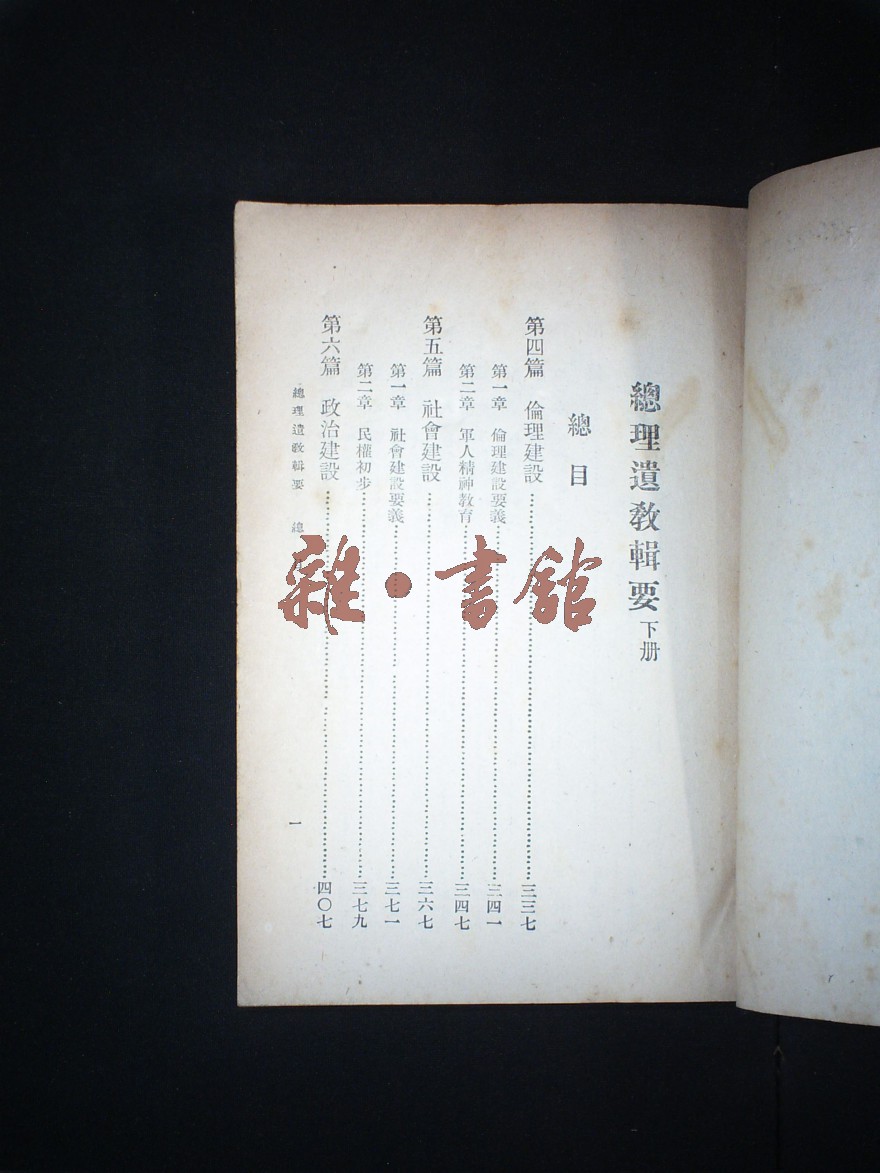 總理遺教輯要 下册
總目
第四篇 倫理建設……三三七
第一章 倫理建設要義……三四一
第二章 軍人精神教育……三四七
第五篇 社會建設……三六七
第一章 社會建設要義……三七一
第二章 民權初步……三七九
第六篇 政治建設……四〇七
總理遺教輯要 總
一
雜·書館